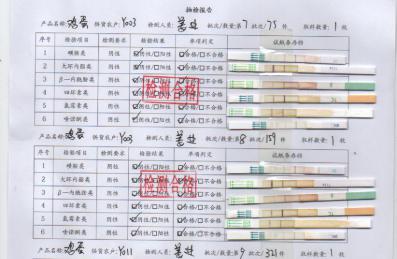 抽检报告
产品名称:鸡蛋 供货农户:Y003 检测人员: 批次/数量:第7/75件 取样数量:1枚
序号 检验项目 检测要求 检验结果 单项判定 试纸条存档
1 磺胺类 阴性 ☑阴性/□阳性 ☑合格/□不合格
2 大环内酯类 阴性 ☑阴性/□阳性 ☑合格/□不合格
3 β-内酰胺类 阴性 ☑阴性/□阳性 ☑合格/□不合格
4 四环素类 阴性 ☑阴性/□阳性 ☑合格/□不合格
5 氟苯尼类 阴性 ☑阴性/□阳性 ☑合格/□不合格
6 喹诺酮类 阴性 ☑阴性/□阳性 ☑合格/□不合格
检测合格
产品名称:鸡蛋 供货农户:Y003 检测人员: 批次/数量:第8/159件 取样数量:1枚
序号 检验项目 检测要求 检验结果 单项判定 试纸条存档
1 磺胺类 阴性 ☑阴性/□阳性 ☑合格/□不合格
2 大环内酯类 阴性 ☑阴性/□阳性 ☑合格/□不合格
3 β-内酰胺类 阴性 ☑阴性/□阳性 ☑合格/□不合格
4 四环素类 阴性 ☑阴性/□阳性 ☑合格/□不合格
5 氟苯尼类 阴性 ☑阴性/□阳性 ☑合格/□不合格
6 喹诺酮类 阴性 ☑阴性/□阳性 ☑合格/□不合格
检测合格
产品名称:鸡蛋 供货农户:Y011 检测人员: 批次/数量:第9/321件 取样数量:1枚